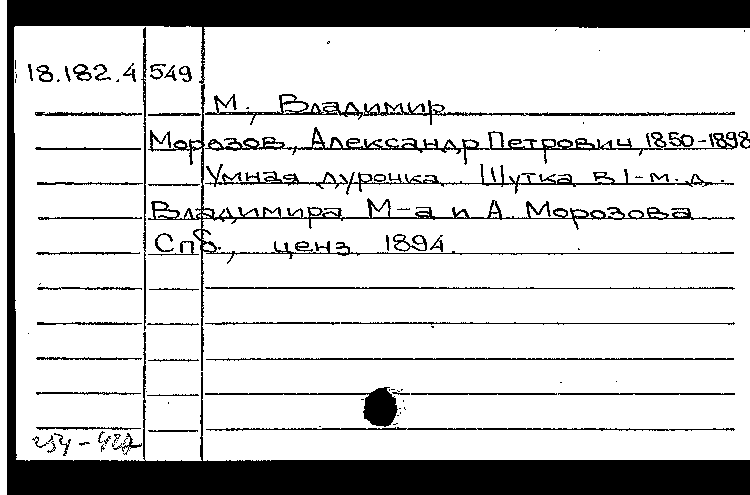 18.182.4 549
М., Владимир
Морозов, Александр Петрович, 1850-1898
Умная дурочка. Шутка в 1-м д.
Владимира М-а и А. Морозова
Спб., ценз. 1894.